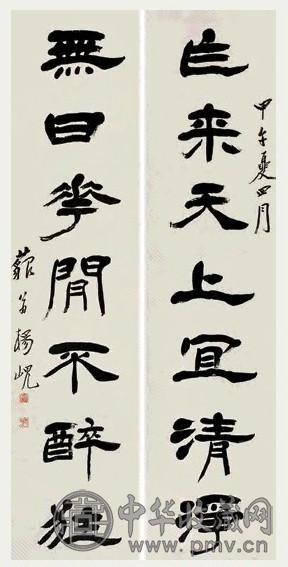 来天上宜清淨
甲午夏四月
無日花閒不醉狂
藐翁楊峴
中华收藏网
www.pmv.cn